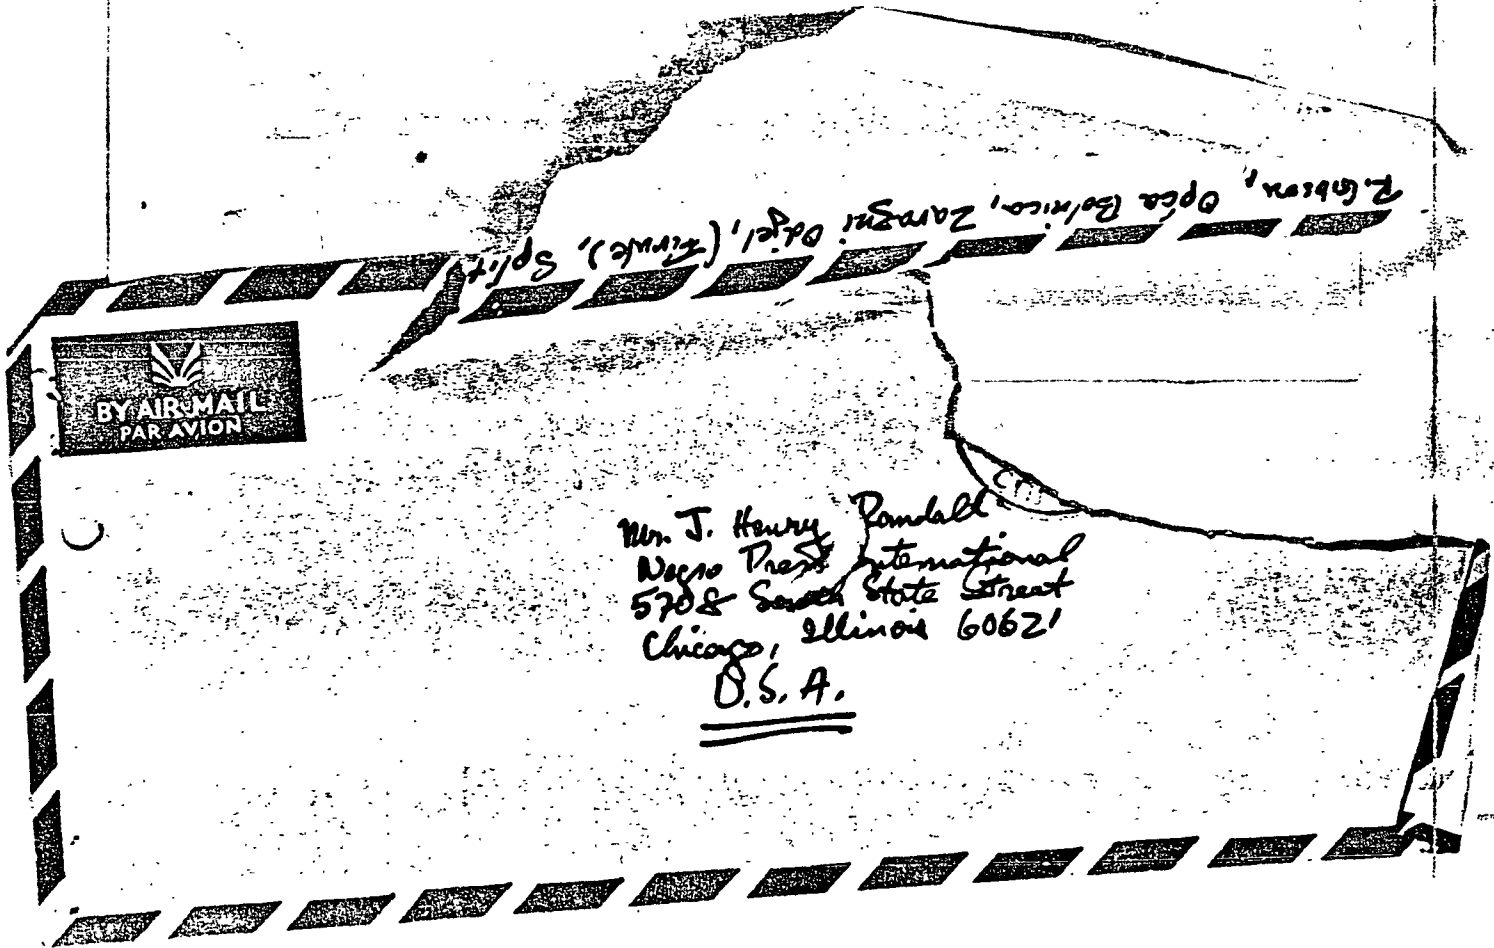 R. Gibson, Opća Bolnica, Zarazni Odjel, (Firule), Split
BY AIR MAIL
PAR AVION
Mr. J. Henry Randall
Negro Press International
5708 South State Street
Chicago, Illinois 60621
U.S.A.